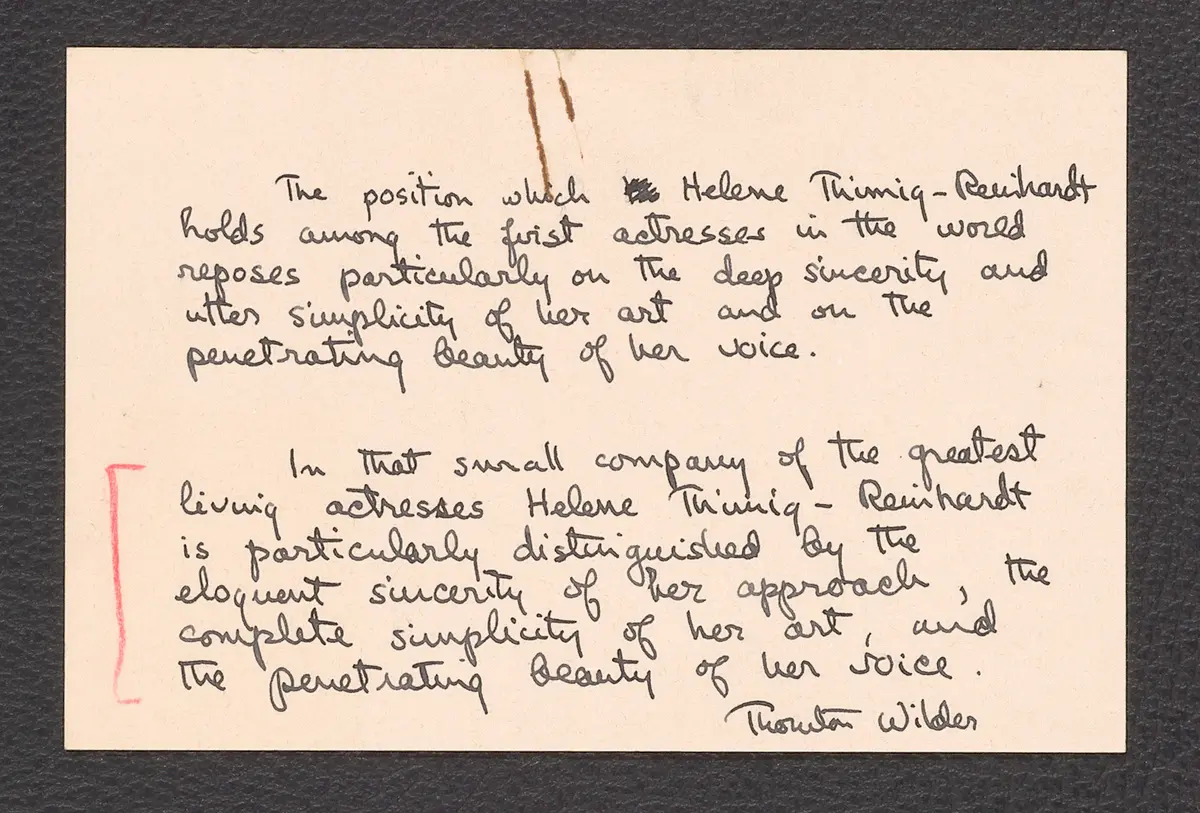 The position which Helene Thimig-Reinhardt
holds among the first actresses in the world
reposes particularly on the deep sincerity and
utter simplicity of her art and on the
penetrating beauty of her voice.
In that small company of the greatest
living actresses Helene Thimig-Reinhardt
is particularly distinguished by the
eloquent sincerity of her approach, the
complete simplicity of her art, and
the penetrating beauty of her voice.
Thornton Wilder